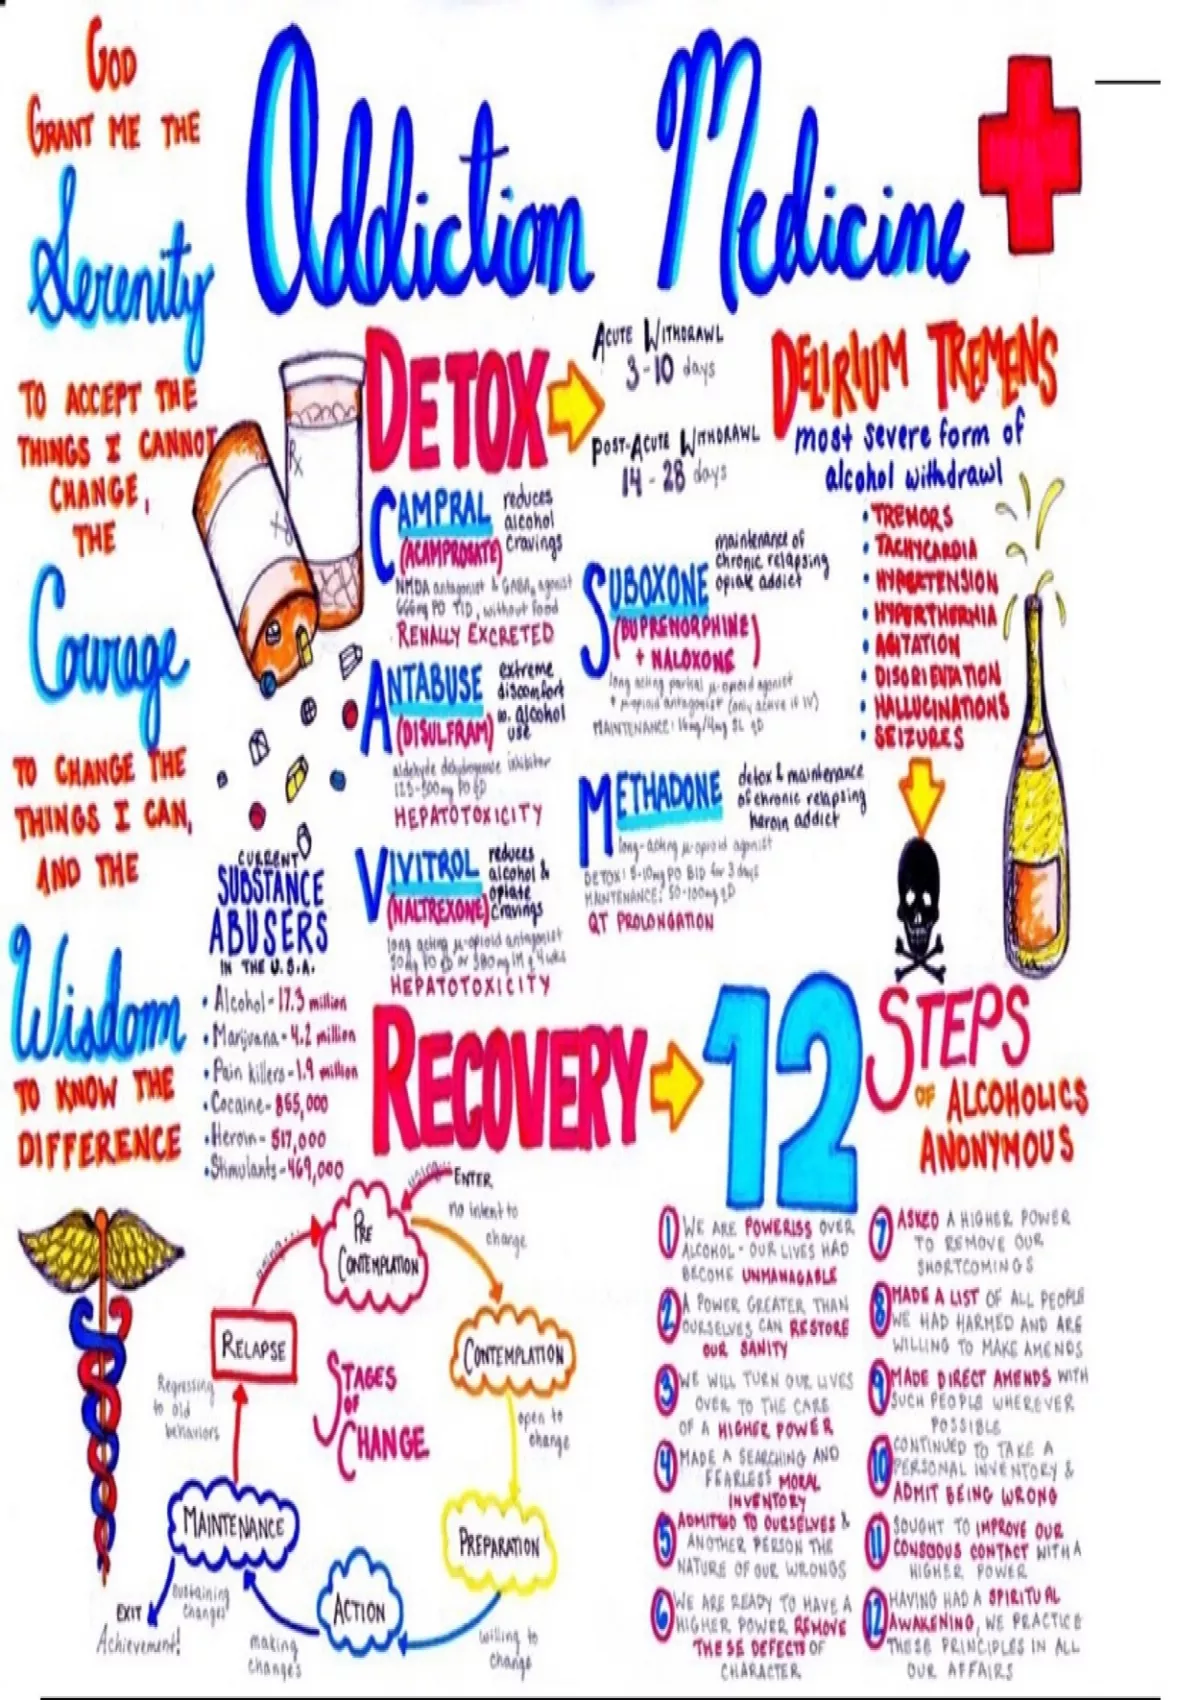 GOD
GRANT ME THE
Serenity
TO ACCEPT THE
THINGS I CANNOT
CHANGE,
THE
Courage
TO CHANGE THE
THINGS I CAN,
AND THE
Wisdom
TO KNOW THE
DIFFERENCE
Addiction Medicine
DETOX
ACUTE WITHDRAWL
3-10 days
POST-ACUTE WITHDRAWL
14-28 days
DELIRIUM TREMENS
most severe form of
alcohol withdrawl
• TREMORS
• TACHYCARDIA
• HYPERTENSION
• HYPERTHERMIA
• AGITATION
• DISORIENTATION
• HALLUCINATIONS
• SEIZURES
Rx
CAMPRAL
(ACAMPROSATE)
reduces
alcohol
cravings
NMDA antagonist & GABAA agonist
666mg PO TID, without food
RENALLY EXCRETED
ANTABUSE
(DISULFRAM)
extreme
discomfort
w. alcohol
use
aldehyde dehydrogenase inhibitor
125-500mg PO QD
HEPATOTOXICITY
VIVITROL
(NALTREXONE)
reduces
alcohol &
opiate
cravings
long acting μ-opioid antagonist
50mg PO QD or 380mg IM q 4wks
HEPATOTOXICITY
SUBOXONE
(BUPRENORPHINE
+ NALOXONE)
maintenance of
chronic relapsing
opiate addict
long acting partial μ-opioid agonist
+ μ-opioid antagonist (only active if IV)
MAINTENANCE: 16mg/4mg SL QD
METHADONE
detox & maintenance
of chronic relapsing
heroin addict
long-acting μ-opioid agonist
DETOX: 5-10mg PO BID for 3 days
MAINTENANCE: 50-100mg QD
QT PROLONGATION
CURRENT
SUBSTANCE
ABUSERS
IN THE U.S.A.
• Alcohol - 17.3 million
• Marijuana - 4.2 million
• Pain killers - 1.9 million
• Cocaine - 855,000
• Heroin - 517,000
• Stimulants - 469,000
RECOVERY
12
STEPS
OF ALCOHOLICS
ANONYMOUS
STAGES
OF
CHANGE
ENTER
PRE
CONTEMPLATION
no intent to
change
CONTEMPLATION
open to
change
PREPARATION
willing to
change
ACTION
making
changes
MAINTENANCE
sustaining
changes
EXIT
Achievement!
Regressing
to old
behaviors
RELAPSE
1 WE ARE POWERLSS OVER
ALCOHOL - OUR LIVES HAD
BECOME UNMANAGABLE
2 A POWER GREATER THAN
OURSELVES CAN RESTORE
OUR SANITY
3 WE WILL TURN OUR LIVES
OVER TO THE CARE
OF A HIGHER POWER
4 MADE A SEARCHING AND
FEARLESS MORAL
INVENTORY
5 ADMITTED TO OURSELVES &
ANOTHER PERSON THE
NATURE OF OUR WRONGS
6 WE ARE READY TO HAVE A
HIGHER POWER REMOVE
THESE DEFECTS OF
CHARACTER
7 ASKED A HIGHER POWER
TO REMOVE OUR
SHORTCOMINGS
8 MADE A LIST OF ALL PEOPLE
WE HAD HARMED AND ARE
WILLING TO MAKE AMENDS
9 MADE DIRECT AMENDS WITH
SUCH PEOPLE WHEREVER
POSSIBLE
10 CONTINUED TO TAKE A
PERSONAL INVENTORY &
ADMIT BEING WRONG
11 SOUGHT TO IMPROVE OUR
CONSCIOUS CONTACT WITH A
HIGHER POWER
12 HAVING HAD A SPIRITUAL
AWAKENING, WE PRACTICE
THESE PRINCIPLES IN ALL
OUR AFFAIRS